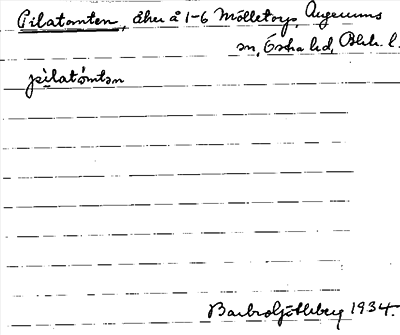 Pilatomten, åker å 1-6 Mölletorp, Augerums
sn, Östra hd, Blek. l.
pìlatómtən
Barbro Göthberg 1934.